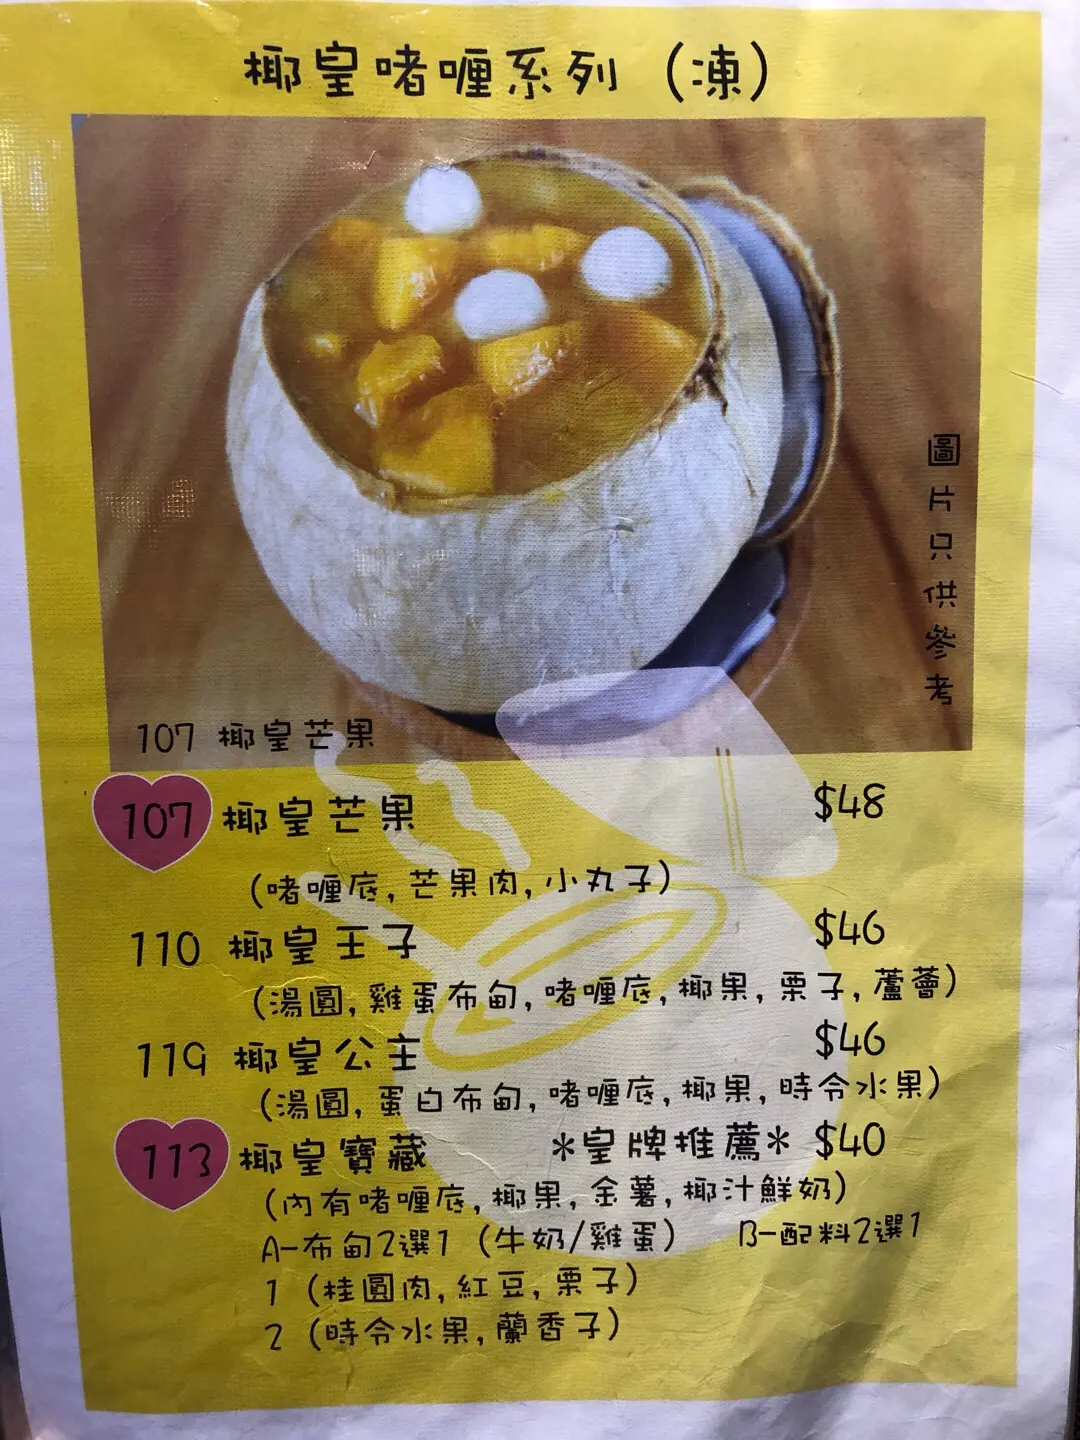 椰皇啫喱系列（凍）
圖片只供參考
107 椰皇芒果
107 椰皇芒果 $48
（啫喱底,芒果肉,小丸子）
110 椰皇王子 $46
（湯圓,雞蛋布甸,啫喱底,椰果,栗子,蘆薈）
119 椰皇公主 $46
（湯圓,蛋白布甸,啫喱底,椰果,時令水果）
113 椰皇寶藏 *皇牌推薦* $40
（內有啫喱底,椰果,金薯,椰汁鮮奶）
A-布甸2選1（牛奶/雞蛋） B-配料2選1
1（桂圓肉,紅豆,栗子）
2（時令水果,蘭香子）